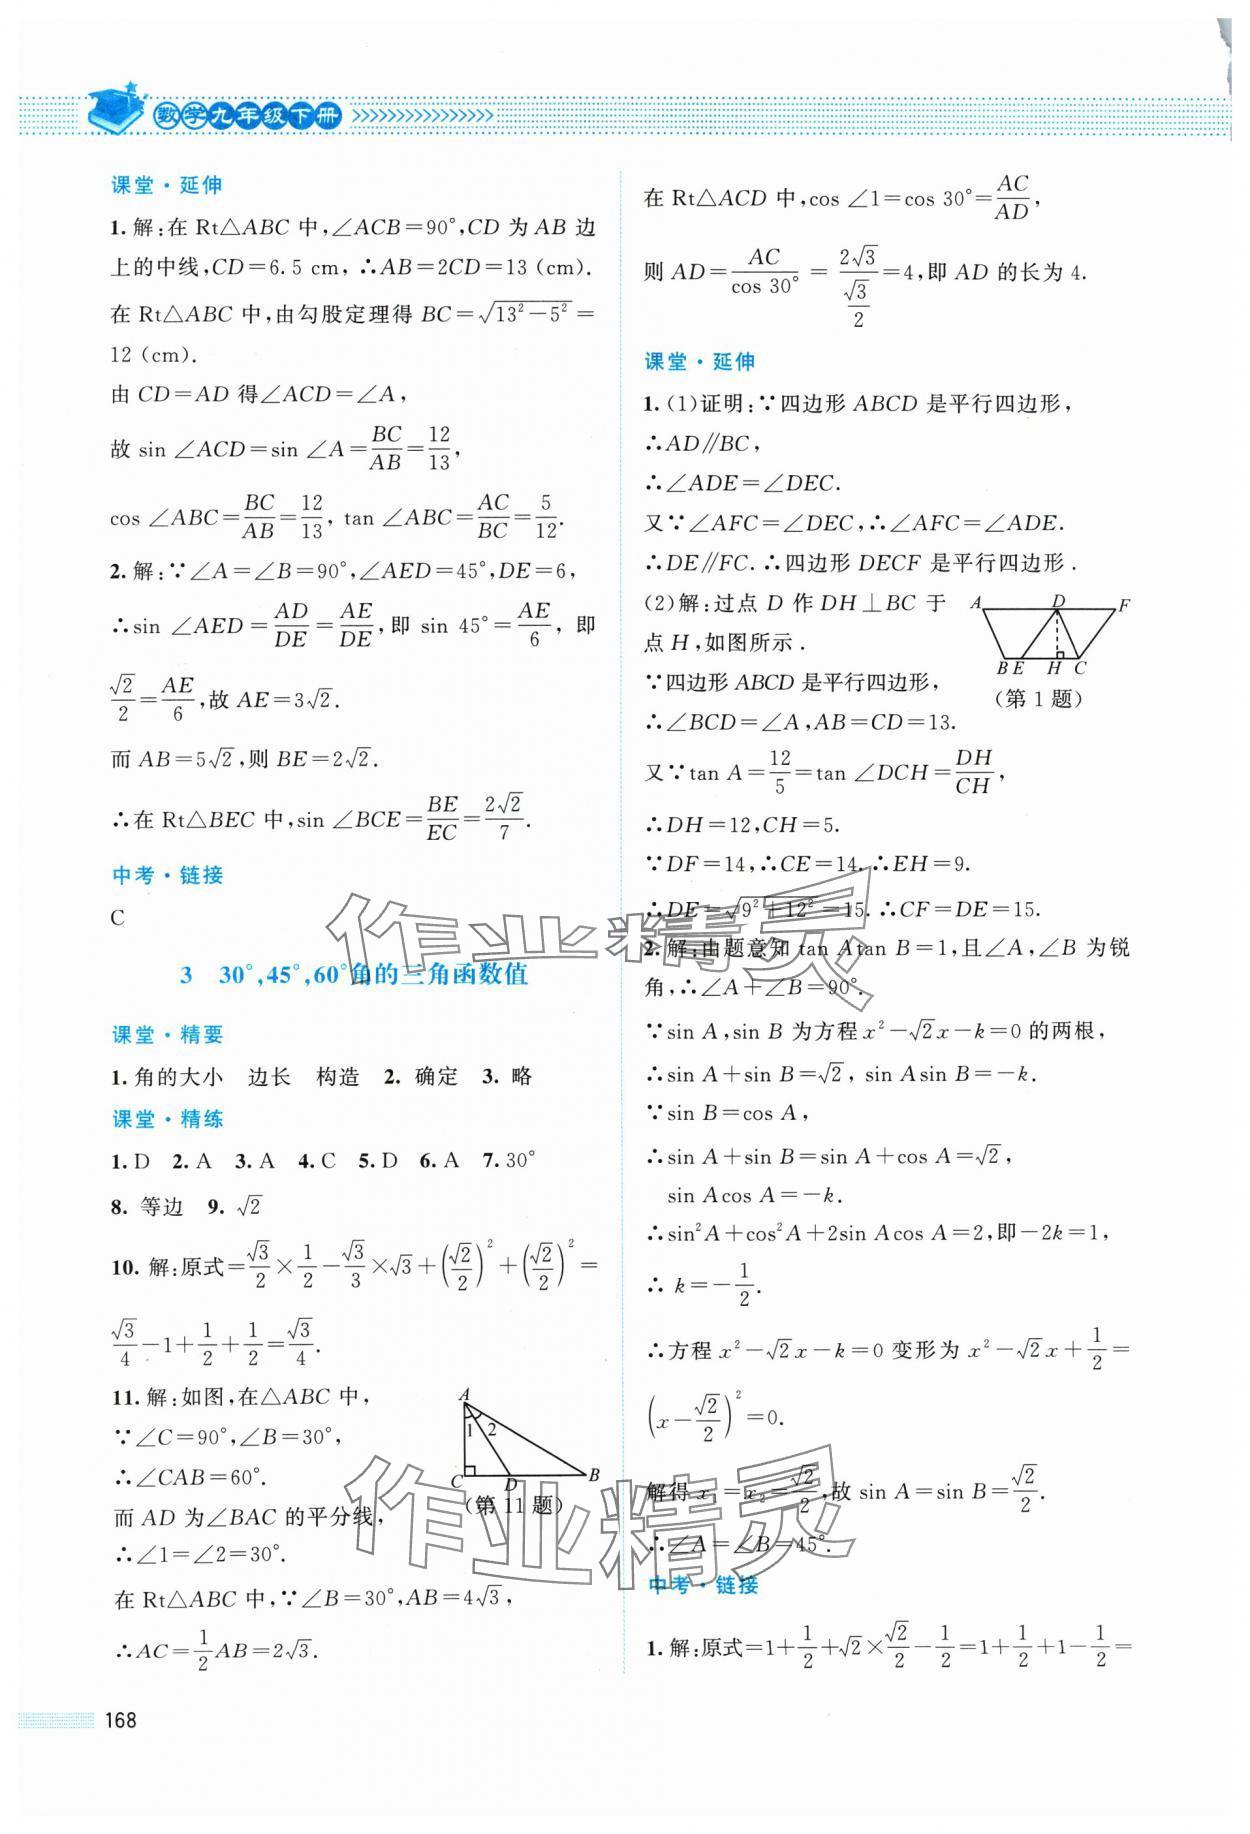 数学九年级下册
课堂·延伸
1. 解:在 Rt△ABC 中,∠ACB=90°,CD 为 AB 边
上的中线,CD=6.5 cm,∴AB=2CD=13 (cm).
在 Rt△ABC 中,由勾股定理得 BC=√(13²−5²)=
12 (cm).
由 CD=AD 得∠ACD=∠A,
故 sin ∠ACD=sin ∠A=BC/AB=12/13,
cos ∠ABC=BC/AB=12/13, tan ∠ABC=AC/BC=5/12.
2. 解:∵∠A=∠B=90°,∠AED=45°,DE=6,
∴sin ∠AED=AD/DE=AE/DE,即 sin 45°=AE/6, 即
√2/2=AE/6,故 AE=3√2.
而 AB=5√2,则 BE=2√2.
∴在 Rt△BEC 中,sin ∠BCE=BE/EC=2√2/7.
中考·链接
C
3 30°,45°,60°角的三角函数值
课堂·精要
1. 角的大小 边长 构造 2. 确定 3. 略
课堂·精练
1. D 2. A 3. A 4. C 5. D 6. A 7. 30°
8. 等边 9. √2
10. 解:原式=√3/2×1/2−√3/3×√3+(√2/2)²+(√2/2)²=
√3/4−1+1/2+1/2=√3/4.
11. 解:如图,在△ABC 中,
∵∠C=90°,∠B=30°,
∴∠CAB=60°.
而 AD 为∠BAC 的平分线,
∴∠1=∠2=30°.
A
1 2
C D B
(第 11 题)
在 Rt△ABC 中,∵∠B=30°,AB=4√3,
∴AC=1/2AB=2√3.
在 Rt△ACD 中,cos ∠1=cos 30°=AC/AD,
则 AD=AC/cos 30°=2√3/(√3/2)=4,即 AD 的长为 4.
课堂·延伸
1. (1)证明:∵四边形 ABCD 是平行四边形,
∴AD∥BC,
∴∠ADE=∠DEC.
又∵∠AFC=∠DEC,∴∠AFC=∠ADE.
∴DE∥FC.∴四边形 DECF 是平行四边形.
(2)解:过点 D 作 DH⊥BC 于
点 H,如图所示.
∵四边形 ABCD 是平行四边形,
∴∠BCD=∠A,AB=CD=13.
A D F
B E H C
(第 1 题)
又∵tan A=12/5=tan ∠DCH=DH/CH,
∴DH=12,CH=5.
∵DF=14,∴CE=14.∴EH=9.
∴DE=√(9²+12²)=15.∴CF=DE=15.
2. 解:由题意知 tan Atan B=1,且∠A,∠B 为锐
角,∴∠A+∠B=90°.
∵sin A,sin B 为方程 x²−√2x−k=0 的两根,
∴sin A+sin B=√2, sin Asin B=−k.
∵sin B=cos A,
∴sin A+sin B=sin A+cos A=√2,
sin Acos A=−k.
∴sin²A+cos²A+2sin Acos A=2,即−2k=1,
∴ k=−1/2.
∴方程 x²−√2x−k=0 变形为 x²−√2x+1/2=
(x−√2/2)²=0.
解得 x₁=x₂=√2/2,故 sin A=sin B=√2/2.
∴∠A=∠B=45°.
中考·链接
1. 解:原式=1+1/2+√2×√2/2−1/2=1+1/2+1−1/2=
168
作业精灵
作业精灵